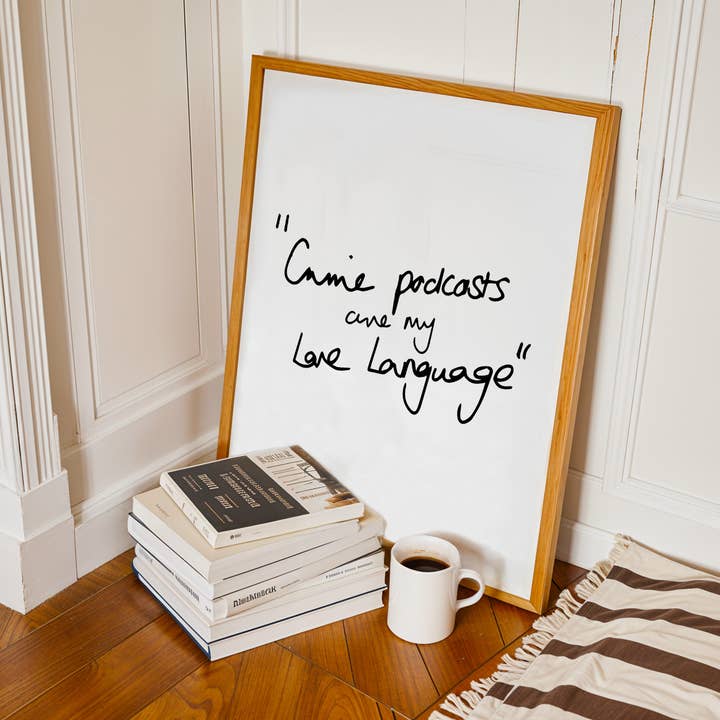 "Crime podcasts
are my
Love Language"